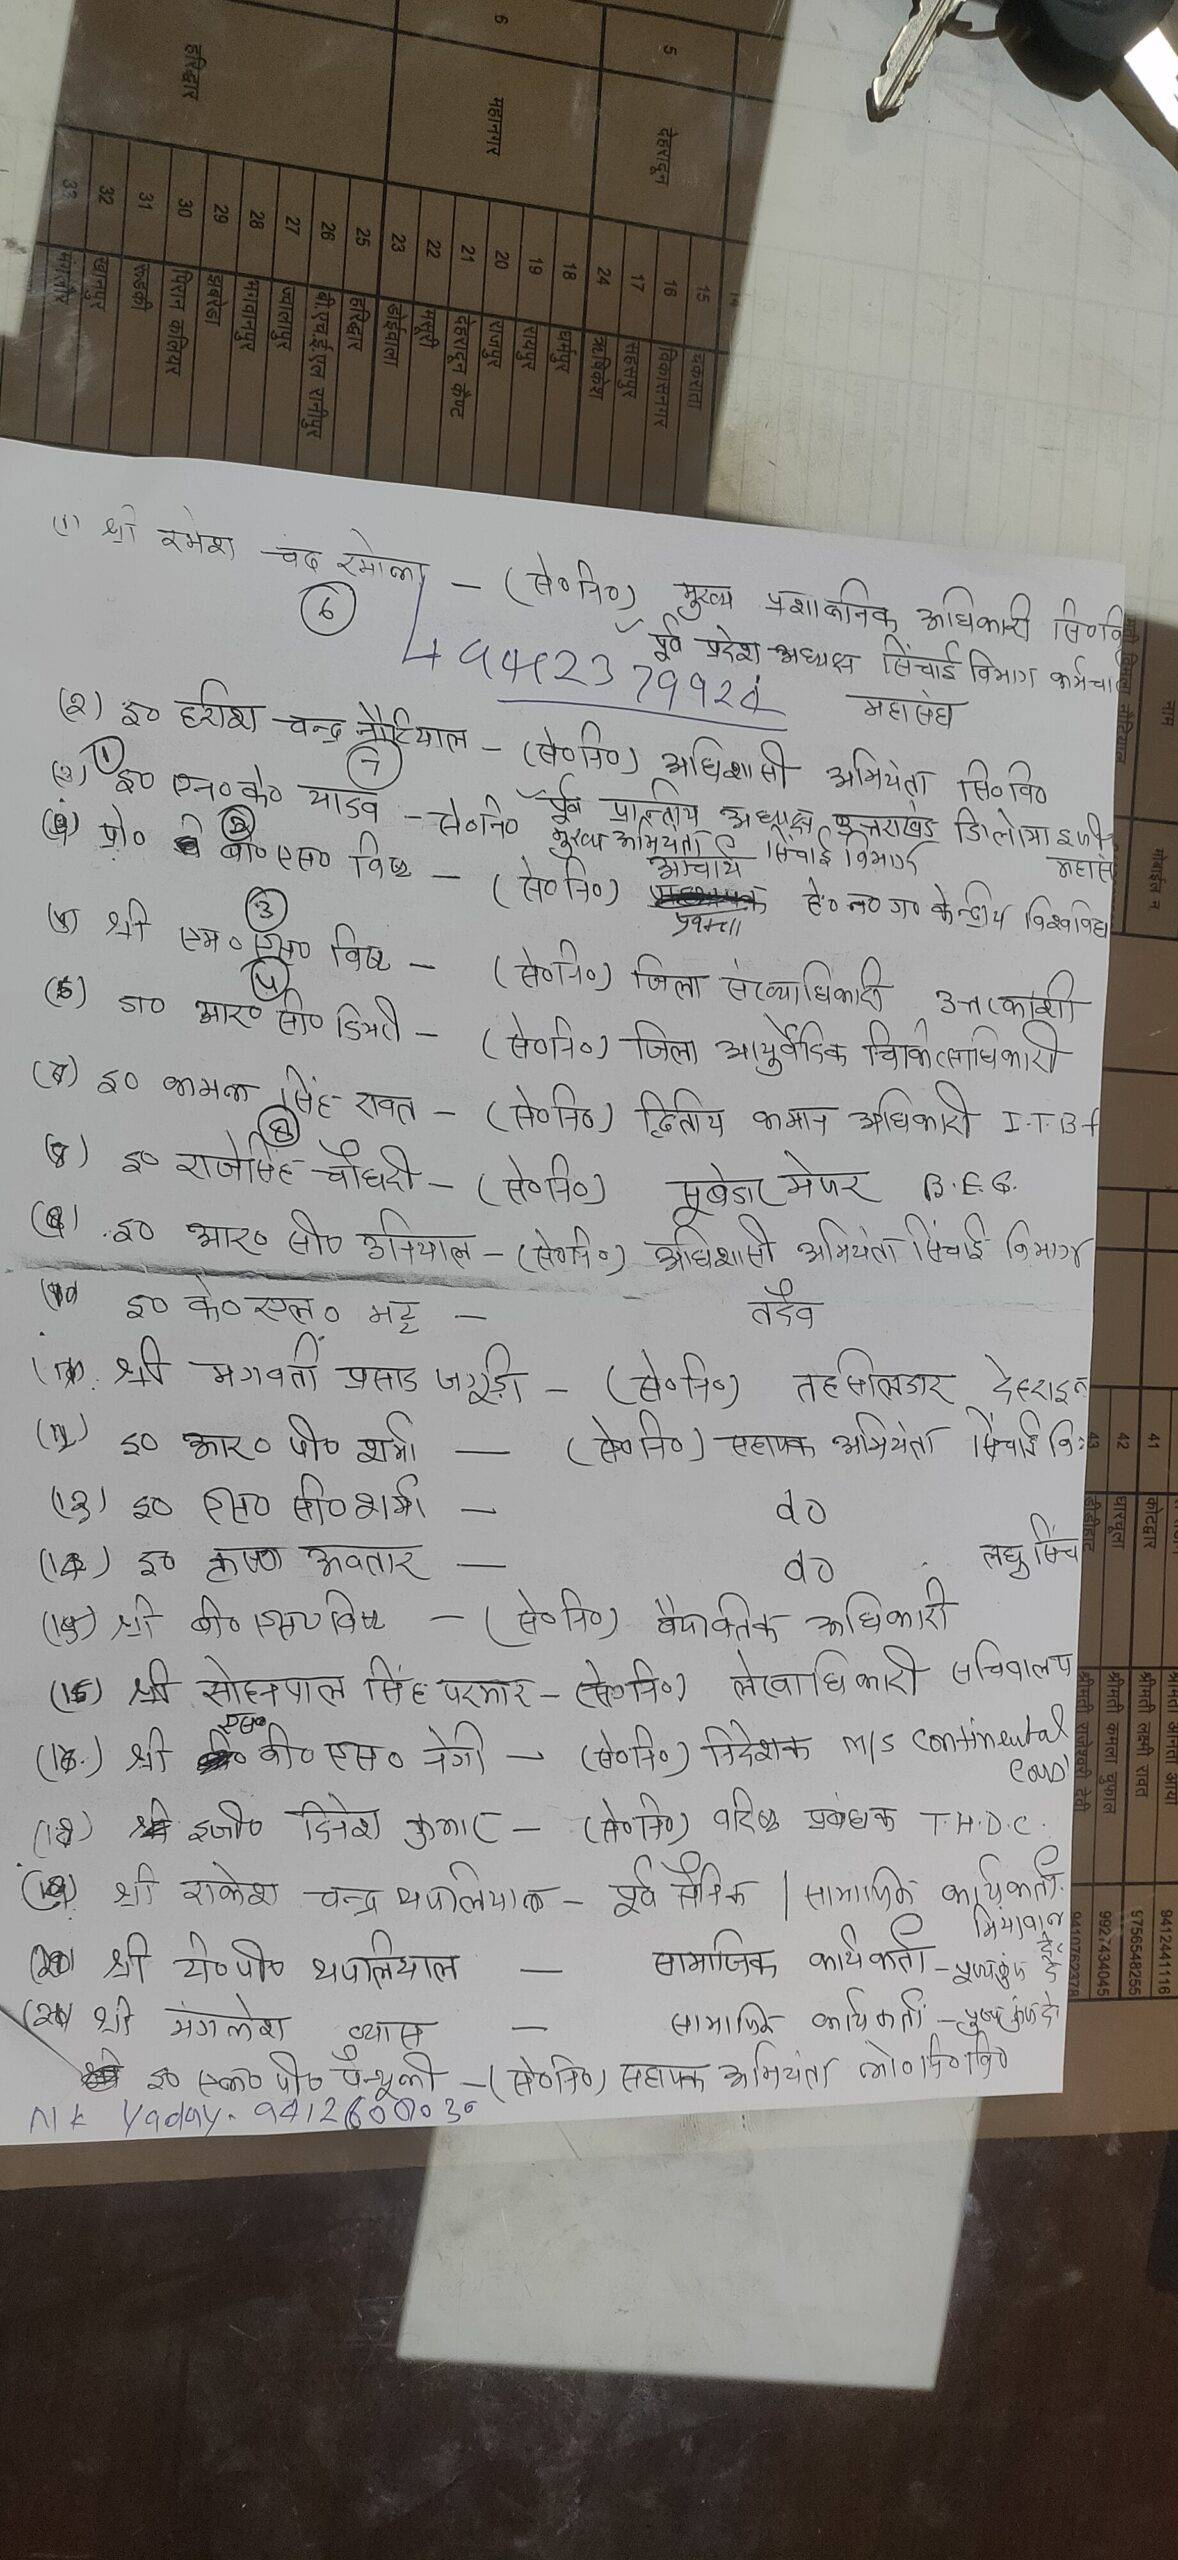 हरिद्वार
6
महानगर
5
देहरादून
33 मंगलौर
32 खानपुर
31 रूडकी
30 पिरान कलियर
29 झबरेडा
28 भगवानपुर
27 ज्वालापुर
26 बी.एच.ई.एल रानीपुर
25 हरिद्वार
23 डोईवाला
22 मसूरी
21 देहरादून कैण्ट
20 राजपुर
19 रायपुर
18 धर्मपुर
24 ऋषिकेश
17 सहसपुर
16 विकासनगर
15 चकराता
14
(1) श्री रमेश चंद रमोला – (से०नि०) मुख्य प्रशाकनिक अधिकारी सि०वि
6
पूर्व प्रदेश अध्यक्ष सिंचाई विभाग कर्मचा
महासंघ
(२) इ० हरीश चन्द्र नौटियाल – (से०नि०) अधिशासी अभियंता सि० वि०
7
पूर्व प्रान्तीय अध्यक्ष उत्तराखंड डिप्लोमा इंजी
महासं
(३) इ० एन० के० यादव – से०नि० मुख्य अभियंता सिंचाई विभाग
1
(४) प्रो० बी० एस० बिष्ट – (से०नि०) आचार्य हे० न० ग० केन्द्रीय विश्वविद्य
2
(५) श्री एम० एस० बिष्ट – (से०नि०) जिला संख्याधिकारी उत्तरकाशी
3
(६) डा० आर० सी० डिमरी – (से०नि०) जिला आयुर्वेदिक चिकित्साधिकारी
4
(७) इ० कमल सिंह रावत – (से०नि०) द्वितीय कमान अधिकारी I.T.B.f
(8) इ० राजेसिंह चौधरी – (से०नि०) सूबेदार मेजर B.E.G.
8
(9) इ० आर० सी० उनियाल – (से०नि०) अधिशासी अभियंता सिंचाई विभाग
(10) इ० के० एल० भट्ट – तदैव
(11) श्री भगवती प्रसाद जगूड़ी – (से०नि०) तहसीलदार देहरादून
(12) इ० आर० पी० शर्मा – (से०नि०) सहायक अभियंता सिंचाई वि०
(13) इ० एस० सी० शर्मा – do
(14) इ० कृष्ण अवतार – do लघु सिंच
(15) श्री बी० एस० बिष्ट – (से०नि०) वैयक्तिक अधिकारी
(16) श्री सोहनपाल सिंह परमार – (से०नि०) लेखाधिकारी सचिवालय
(17.) श्री एस० बी० एस० नेगी – (से०नि०) निदेशक M/S Continental
(18) इंजी० दिनेश कुमार – (से०नि०) वरिष्ठ प्रबंधक T.H.D.C.
(19) श्री राकेश चन्द्र थपलियाल – पूर्व सैनिक / सामाजिक कार्यकर्ता
(20) श्री टी० पी० थपलियाल – सामाजिक कार्यकर्ता –
(21) श्री मंगलेश व्यास – सामाजिक कार्यकर्ता –
इ० एल० पी० पैन्यूली – (से०नि०) सहायक अभियंता लो०नि०वि०
N K Yadav.
नाम
मोबाईल न
41 कोटद्वार श्रीमती लक्ष्मी रावत 9756548255
42 धारचूला श्रीमती कमला चुफाल 9927434045
43 डीडीहाट श्रीमती राजेश्वरी देवी 9410762378
श्रीमती अनिता आर्या 9412441116